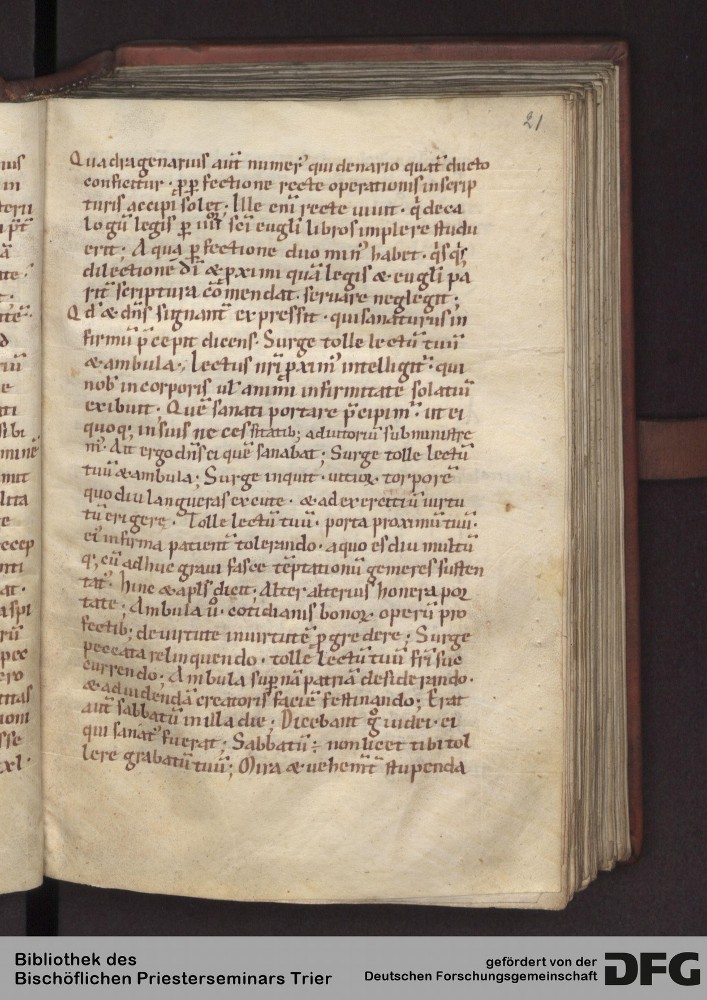 21
Quadragenariuſ aut̄ numer᷒ qui denario quat̄ ducto
conficitur · ꝑ ꝑfectione recte operationiſ inſcrip
turiſ accipi ſolet; Ille eni᷒ recte uiuit · q̄ deca
logū legiſ ꝑ iiii ſcī eugƚii libroſ implere ſtudu
erit; A qua ꝑfectione duo min᷒ habet · qͥſqͥſ
dilectionē dī & ꝓximi quā legiſ & eugƚii pa
rit̄ ſcriptura cōmendat · ſeruare neglegit;
Qd̄ & dn̄ſ ſignant̄ expreſſit · qui ſanaturuſ in
firmū p̄cepit dicenſ · Surge tolle lectū tuū
& ambula; Lectuſ nr̄i ꝓxim᷒ intelligit᷒ · qui
nob᷒ in corporiſ uƚ animi infirmitate ſolatiū
exibuit; Quē ſanati portare p̄cipim᷒ · ut ei
quoq; in ſuiſ neceſſitatib; adiutoriū ſubminiſtre
m᷒ · Ait ergo dn̄ſ ei quē ſanabat; Surge tolle lectū
tuū & ambula; Surge inquit · uitioꝝ torporē
quo diu langueraſ excute · & ad exercitiū uirtu
tū erigere · Tolle lectū tuū · porta proximū tuū ·
ei᷒ infirma patient̄ tolerando · a quo eſ diu multū
q; cū adhuc graui faſce tēptationū gemereſ ſuſten
tat᷒ · hinc & apƚſ dicit; Alter alteriuſ honera por
tate; Ambula ů · cotidianiſ bonoꝝ operū pro
fectib; de uirtute in uirtutē ꝓgredere; Surge
peccata relinquendo · tolle lectū tuū fri᷒ ſuc
currendo; Ambula ſup̄nā patriā deſiderando ·
& ad uidendā creatoriſ faciē feſtinando; Erat
aut̄ ſabbatū in illa die; Dicebant gͦ iudei · ei
qui ſanat᷒ fuerat; Sabbatū ÷ non licet tibi tol
lere grabatū tuū; Mira & uehemt̄ ſtupenda
Bibliothek des
Bischöflichen Priesterseminars Trier
gefördert von der
Deutschen Forschungsgemeinschaft
DFG